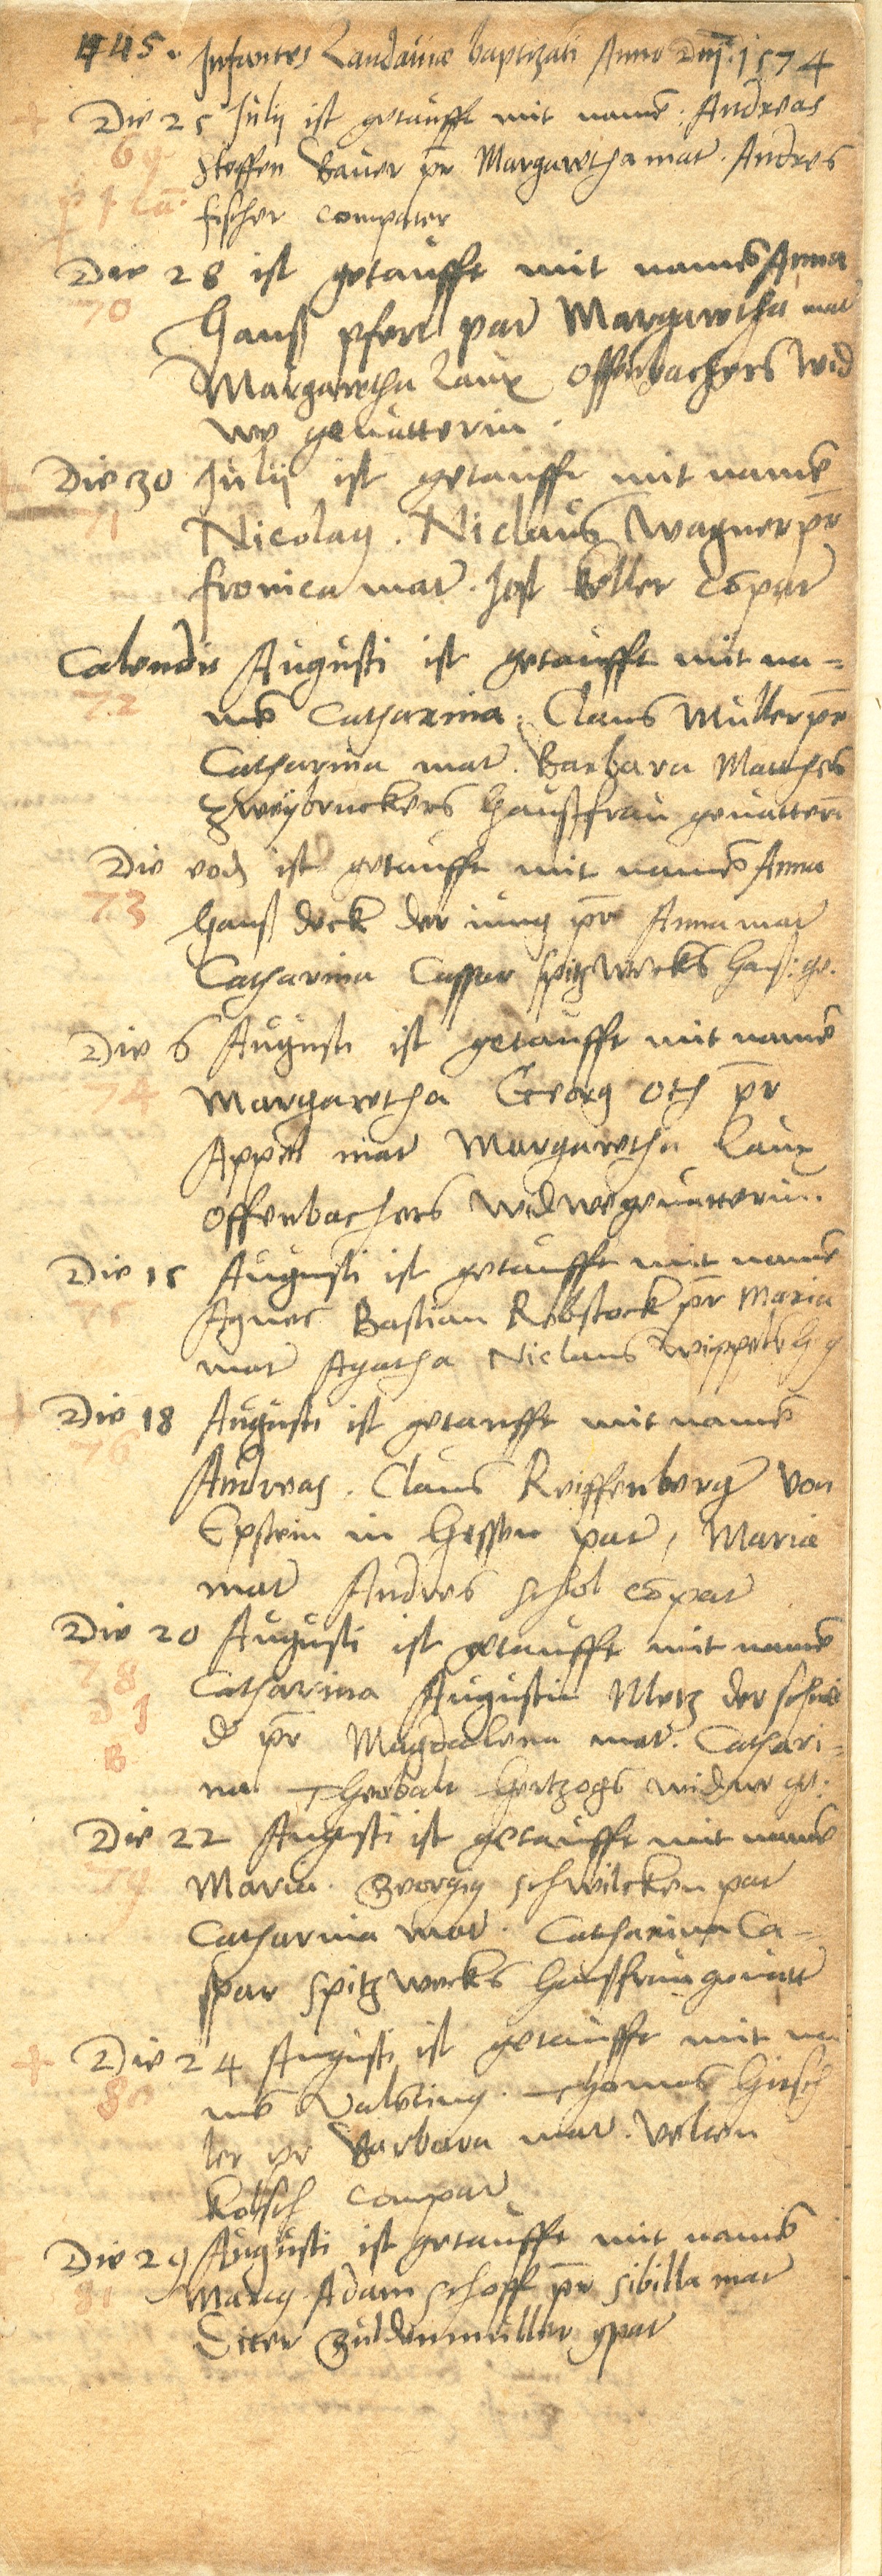 445. Infantes Landauiae baptizati Anno Dnj. 1574
Die 25 Julij ist getaufft mit namē. Andreas
69
Steffen Bauer pr̄ Margaretha mat̄. Andres
fischer compater
Die 28 ist getaufft mit namē Anna
70
Hanß pfert pat̄ Margaretha mat̄
Margaretha Laux Offenbachers wid
we geuatterin.
Die 30 Julij ist getaufft mit namē
71
Nicolaus. Niclaus Wagner pr̄
fronica mat̄. Jost Keller cōpat̄
Calendis Augusti ist getaufft mit na=
72
mē Catharina. Claus Müller pr̄
Catharina mat̄. Barbara Matthes
Zweÿbruckers haußfrau geuatterī
Die eod ist getaufft mit namē Anna
73
Hanß deck der iung pr̄ Anna mat̄
Catharina Caspar Spitzwecks hauß: ge.
Die 6 Augusti ist getaufft mit namē
74
Margaretha Georg Oth pr̄
Appel mat̄ Margaretha Laux
Offenbachers widwe geuatterin.
Die 15 Augusti ist getaufft mit namē
75
Agnes Bastian Rebstock pr̄ Maria
mat̄ Agatha Niclaus Wippels h g
Die 18 Augusti ist getaufft mit namē
76
Andreas. Claus Reiffenberger von
Epstein in Hessen pat̄, Maria
mat̄ Andres Schol cōpat̄
Die 20 Augusti ist getaufft mit namē
78
Catharina Augustin Metz der schmi
d pr̄ Magdalena mat̄. Cathari=
na Thebalt Hertzogs widwe ge.
Die 22 Augusti ist getaufft mit namē
79
Maria. Georgig Schwilcken pat̄
Catharina mat̄. Catharina Ca=
spar Spitzwecks haußfrau geuatt̄
Die 24 Augusti ist getaufft mit na
80
mē Valentinus. Thomas Hirsch
ler pr̄ Barbara mat̄. Velten
Kolsch compat̄
Die 29 Augusti ist getaufft mit namē
81
Marcus Adam Schopff pr̄ Sibilla mat̄
Diter Guldenmüller cōpat̄